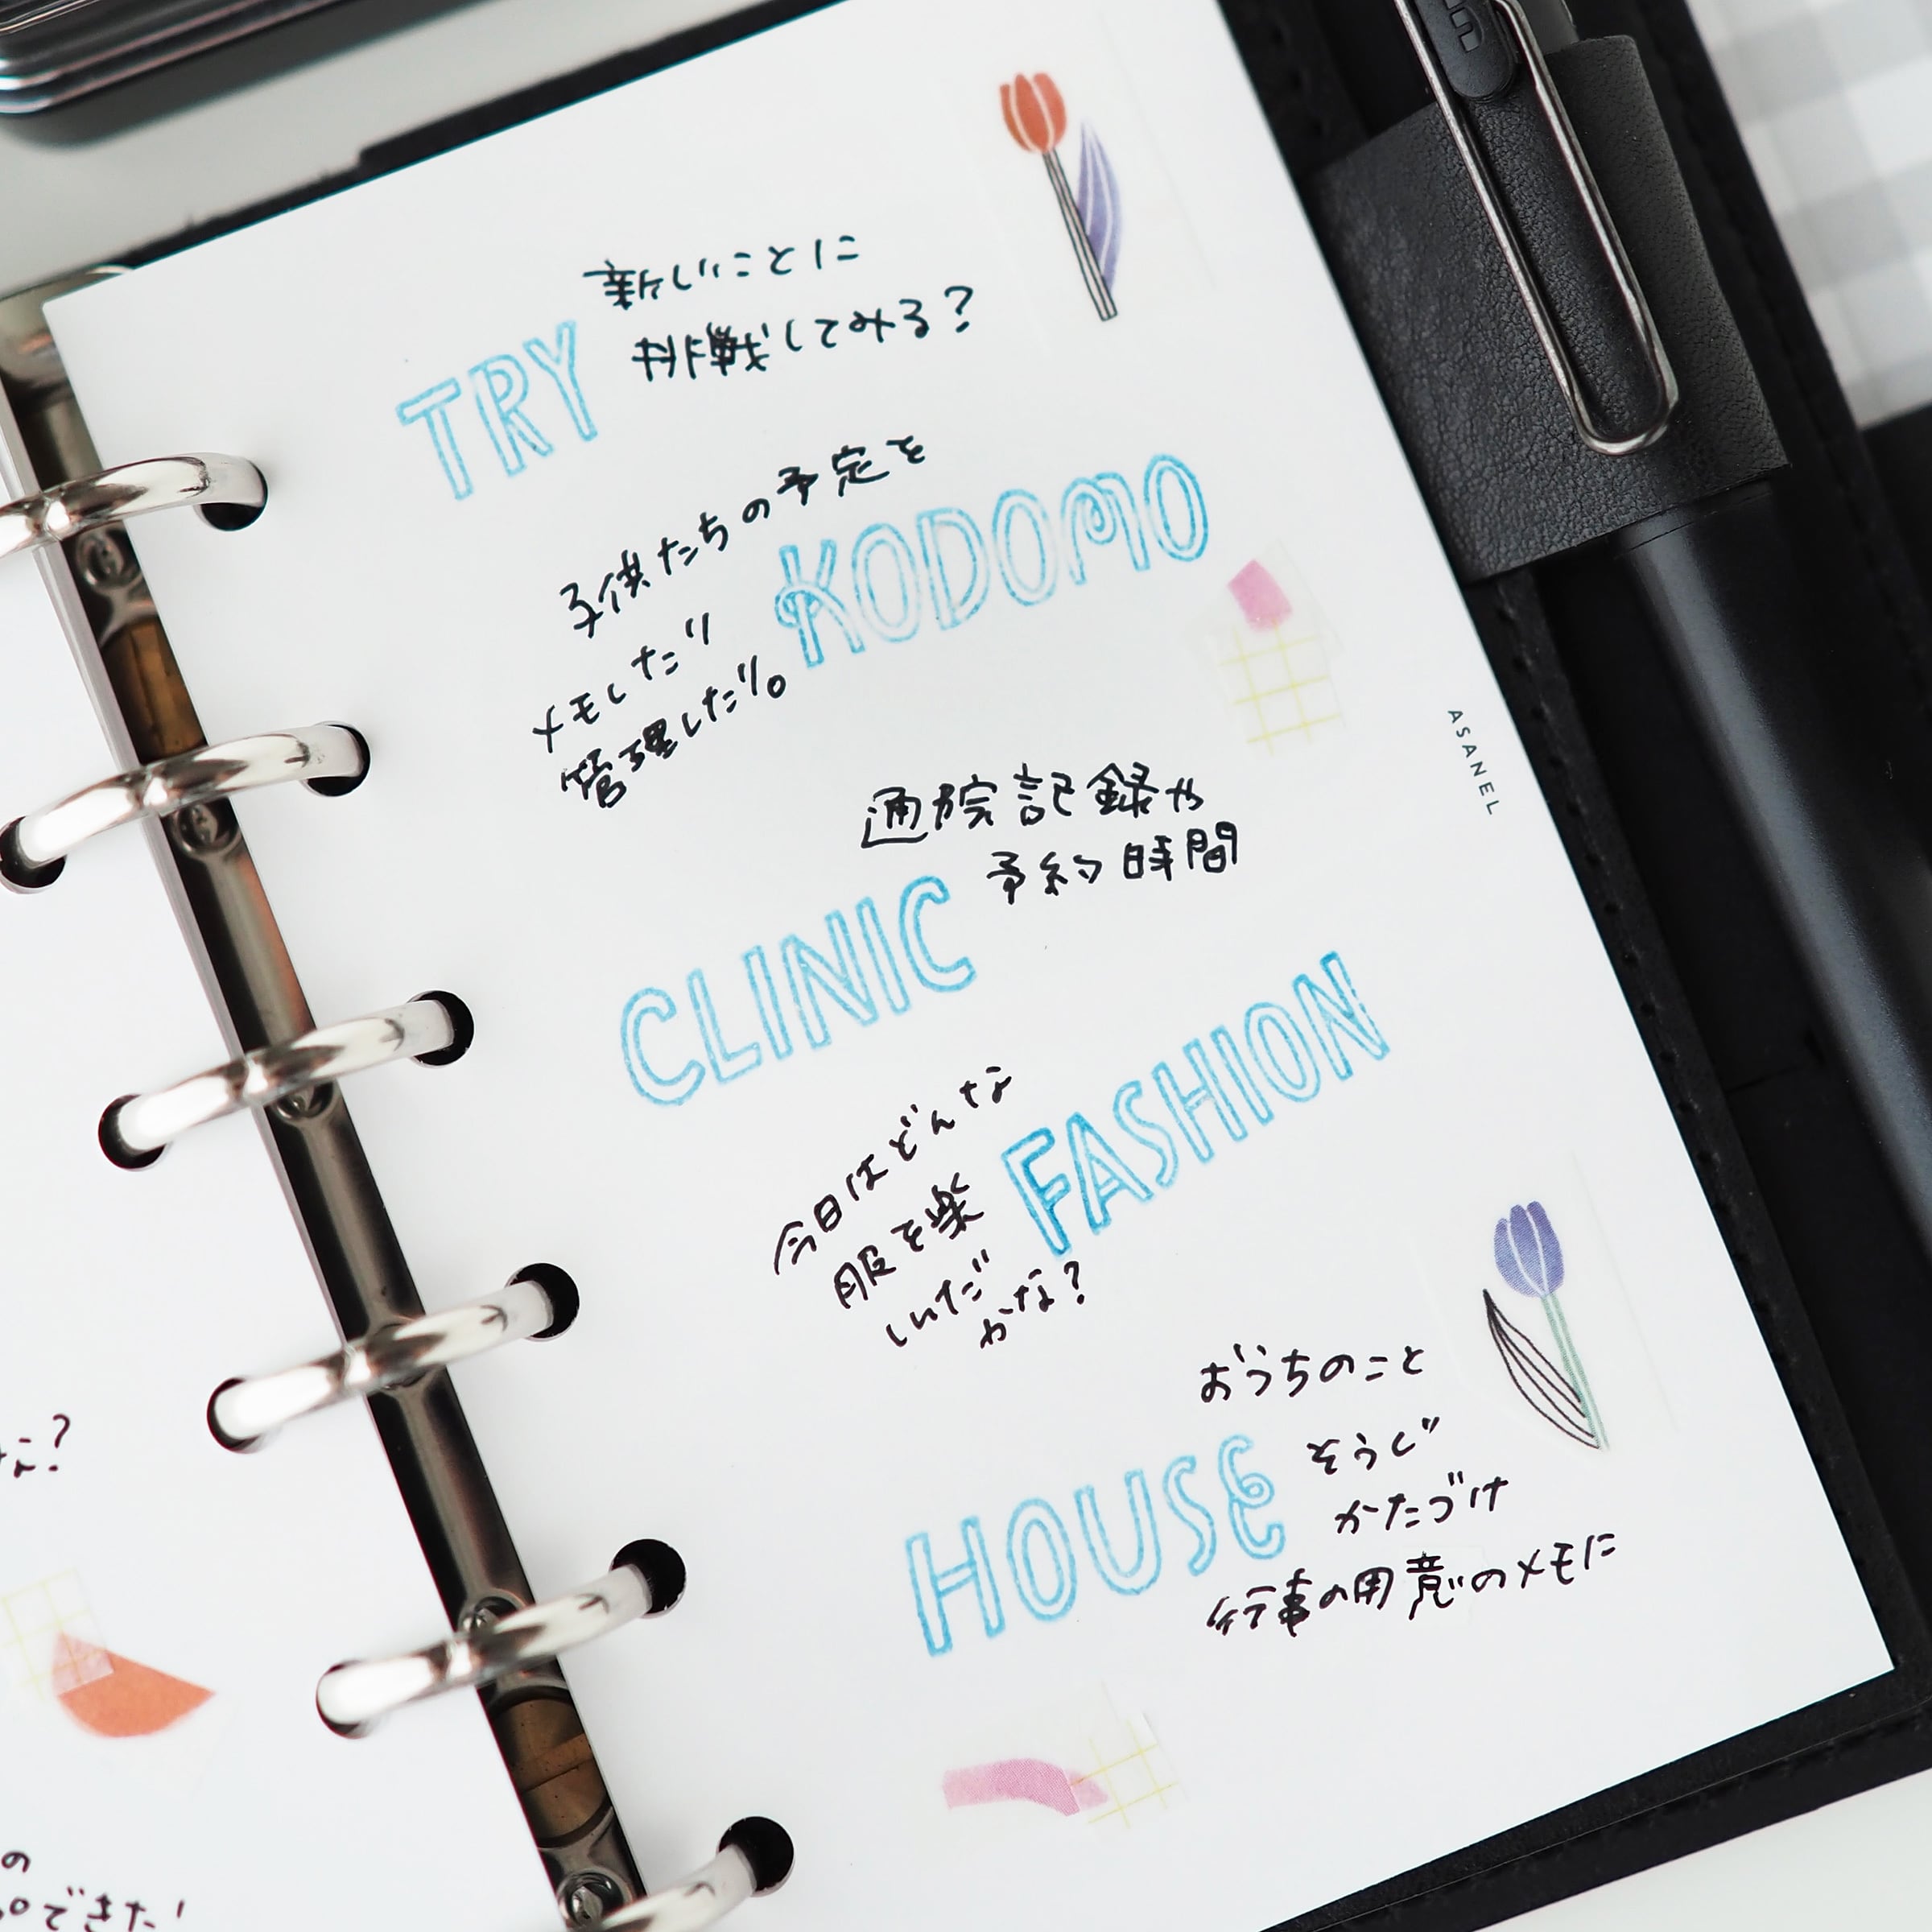 新しいことに
挑戦してみる?
TRY
子供たちの予定を
KODOMO
メモしたり
管理したり。
通院記録や
予約時間
CLINIC
今日はどんな
FASHION
服を楽
しんだ
かな?
おうちのこと
HOUSE
そうじ
かたづけ
行事の用意のメモに
ASANEL
な?
の
できた!